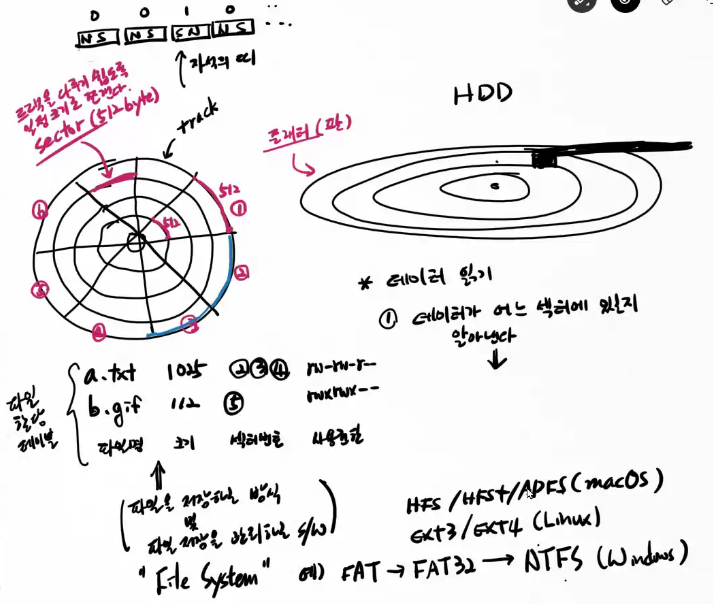 0 0 1 0 ...
NS NS SN NS ...
자석의 띠
트랙을 다루기 쉽도록
일정 크기로 쪼갠다.
sector (512 byte)
track
HDD
플래터 (판)
512
512
①
②
③
④
⑤
⑥
* 데이터 읽기
① 데이터가 어느 섹터에 있는지
알아낸다
파일
할당
테이블
a.txt 1025 ②③④ rw-rw-r--
b.gif 112 ⑤ rwxrwx--
파일명 크기 섹터번호 사용권한
(파일을 저장하는 방식
및
파일 저장을 관리하는 S/W)
"File System" 예) FAT → FAT32 → NTFS (Windows)
HFS / HFS+ / APFS (macOS)
EXT3 / EXT4 (Linux)